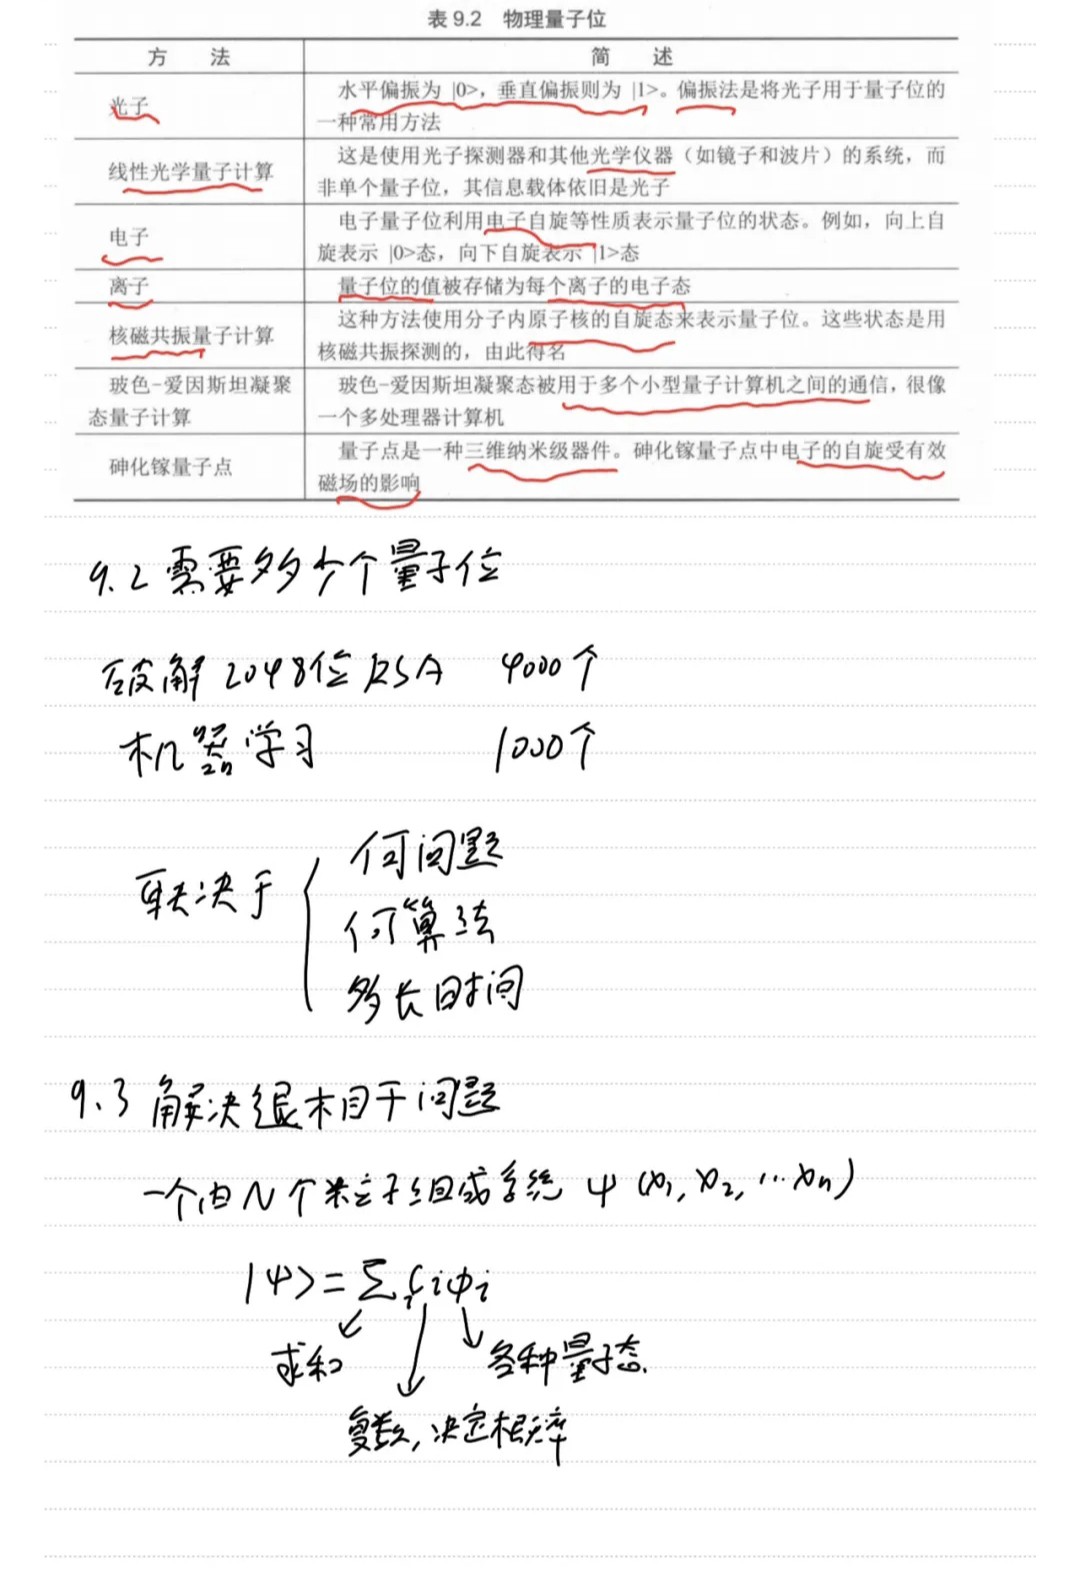 表 9.2 物理量子位
方 法 简 述
光子 水平偏振为 |0>，垂直偏振则为 |1>。偏振法是将光子用于量子位的
一种常用方法
线性光学量子计算 这是使用光子探测器和其他光学仪器（如镜子和波片）的系统，而
非单个量子位，其信息载体依旧是光子
电子 电子量子位利用电子自旋等性质表示量子位的状态。例如，向上自
旋表示 |0>态，向下自旋表示 |1>态
离子 量子位的值被存储为每个离子的电子态
核磁共振量子计算 这种方法使用分子内原子核的自旋态来表示量子位。这些状态是用
核磁共振探测的，由此得名
玻色-爱因斯坦凝聚 玻色-爱因斯坦凝聚态被用于多个小型量子计算机之间的通信，很像
态量子计算 一个多处理器计算机
砷化镓量子点 量子点是一种三维纳米级器件。砷化镓量子点中电子的自旋受有效
磁场的影响
9.2 需要多少个量子位
破解 2048位 RSA 4000个
机器学习 1000个
取决于 { 何问题
何算法
多长时间
9.3 解决退相干问题
一个由N个粒子组成系统 ψ (x₁, x₂, …xₙ)
|ψ> = Σᵢ fᵢφᵢ
求和 各种量子态.
复数, 决定概率